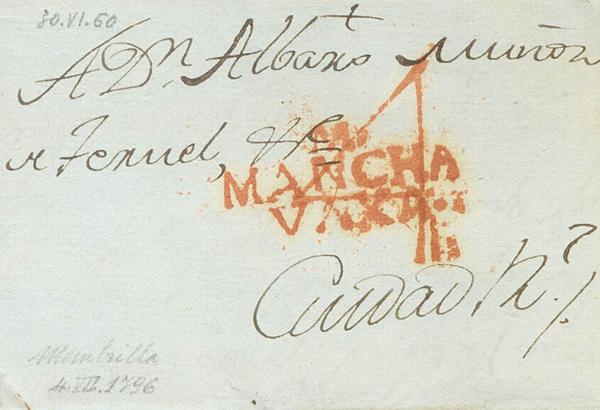 30.VI.60
A Dn. Albaro Muñoz
Y Teruel, &c
MANCHA
VAXA
1
Ciudad Rl.
Membrilla
4.VII.1796